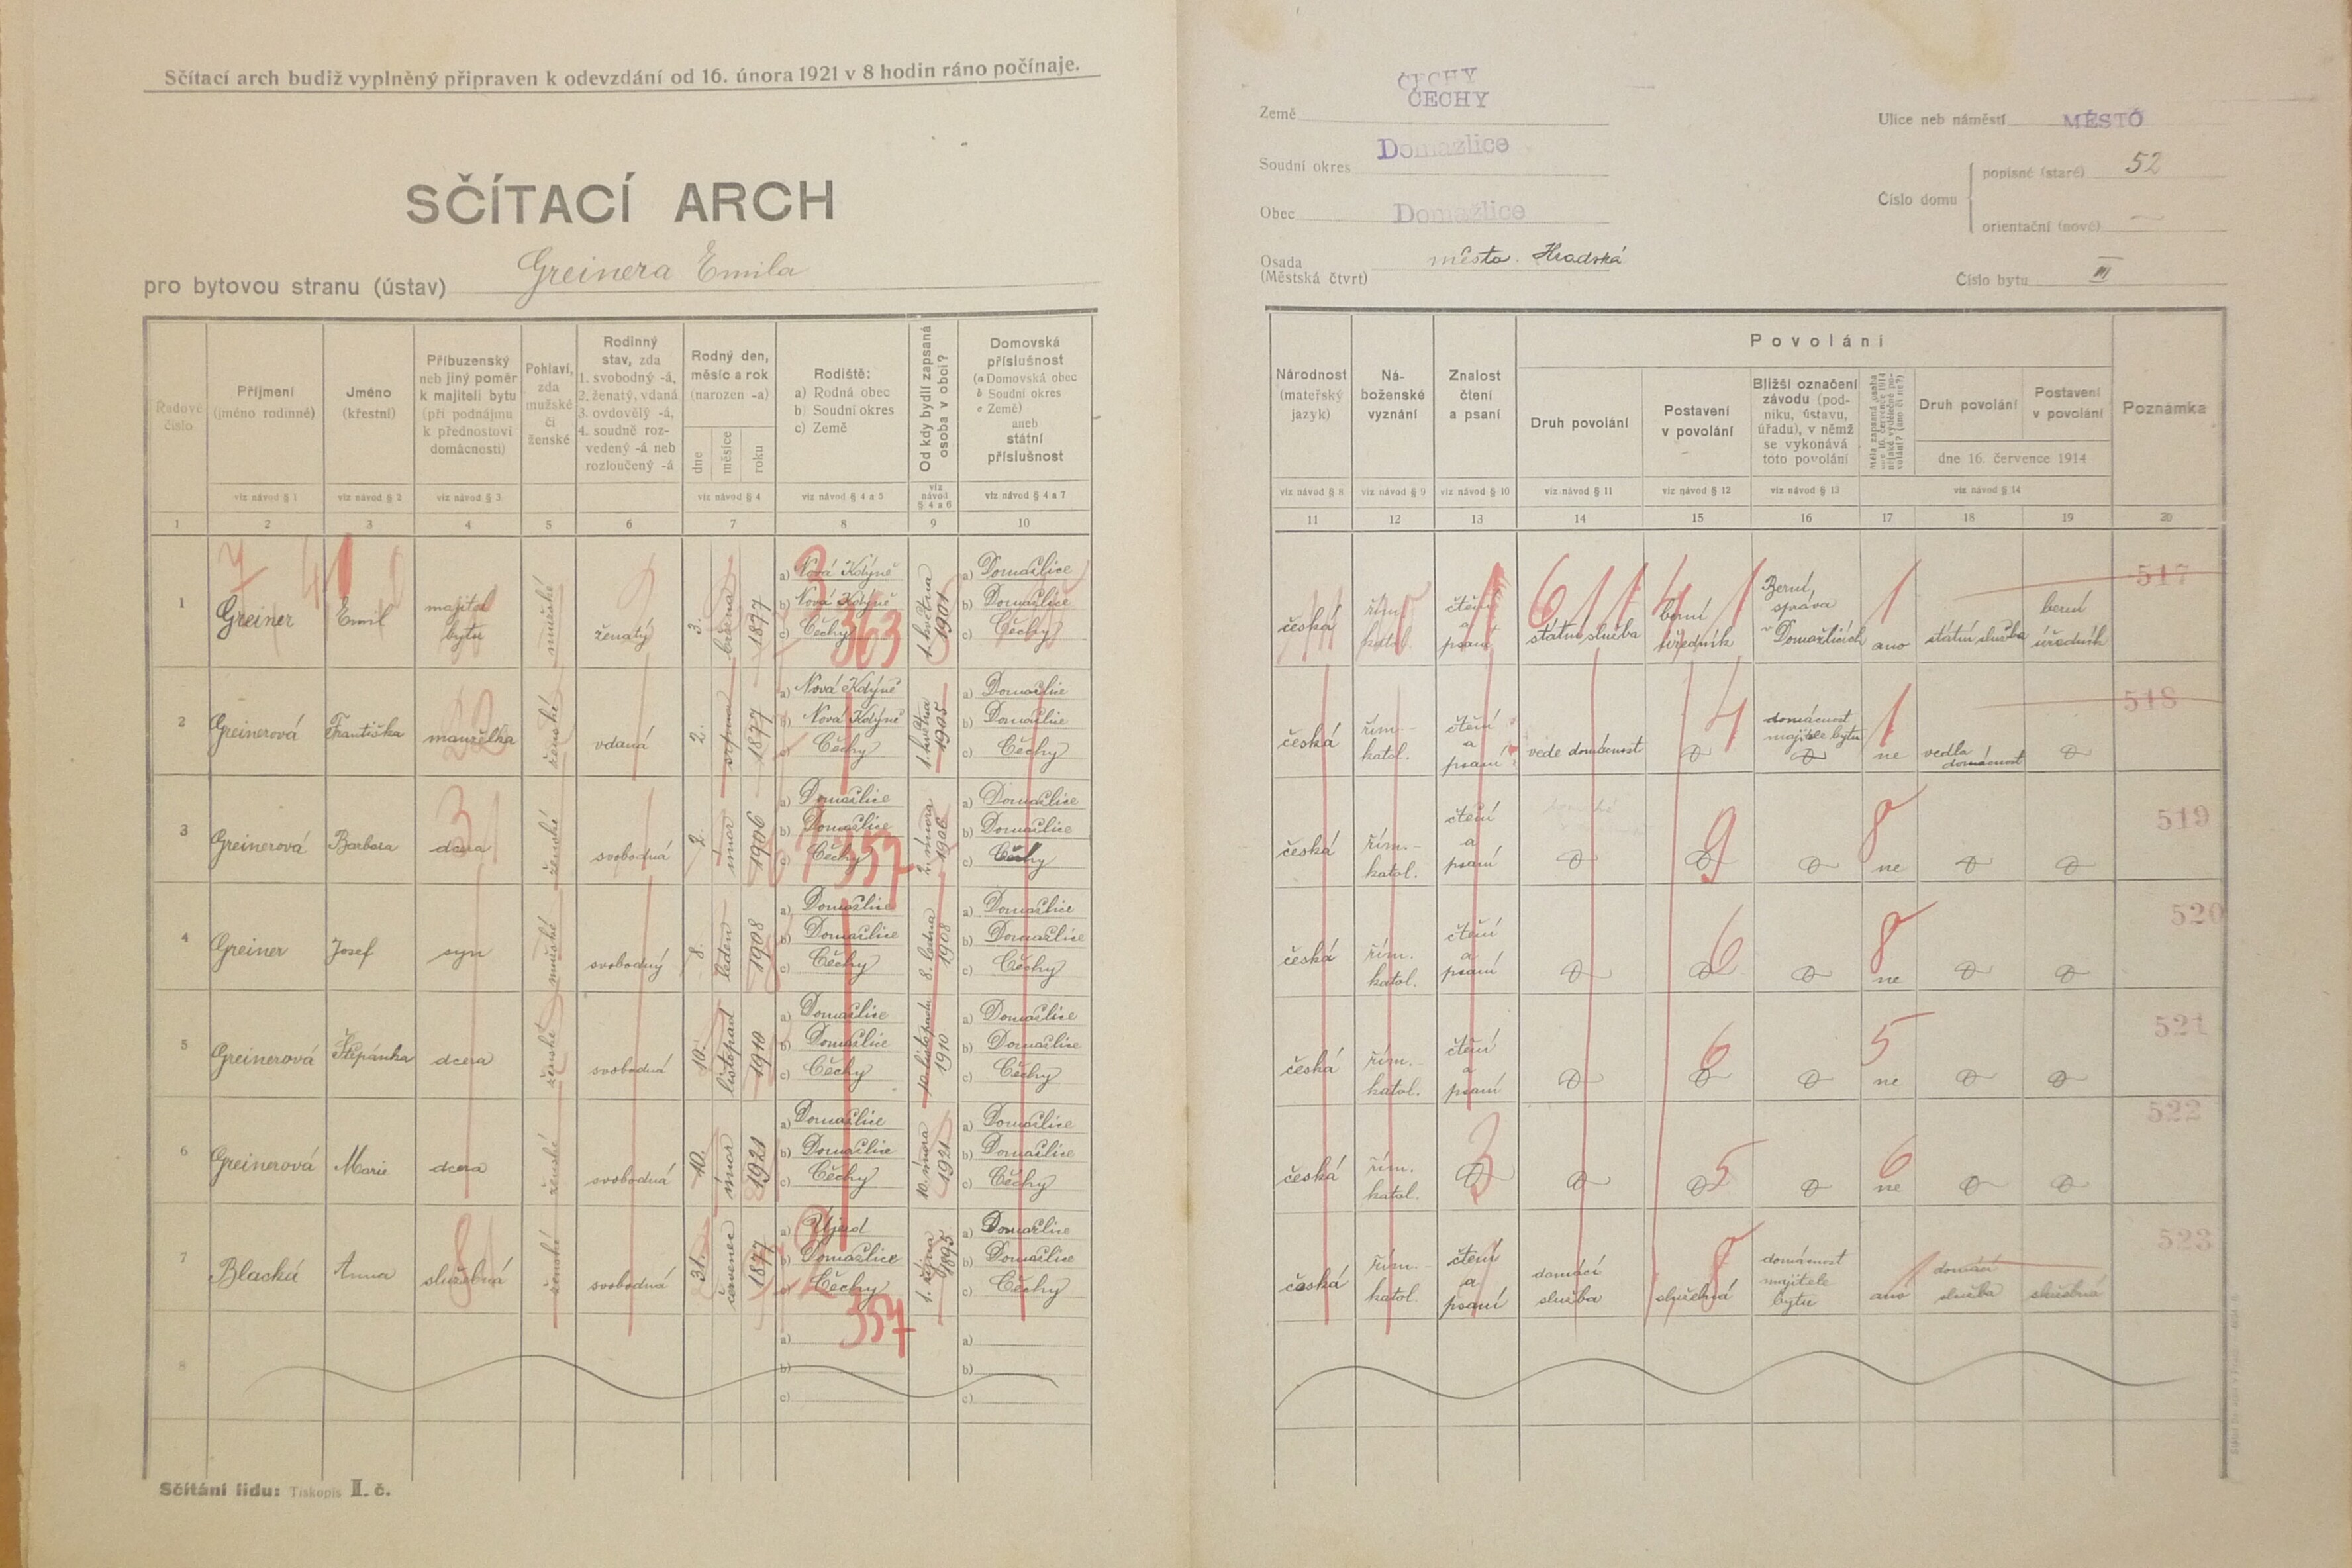 Sčítací arch budiž vyplněný připraven k odevzdání od 16. února 1921 v 8 hodin ráno počínaje.
SČÍTACÍ ARCH
pro bytovou stranu (ústav) Greinera Emila
Řadové číslo
Příjmení (jméno rodinné)
Jméno (křestní)
Příbuzenský neb jiný poměr k majiteli bytu (při podnájmu k přednostovi domácnosti)
Pohlaví, zda mužské či ženské
Rodinný stav, zda 1. svobodný -á, 2. ženatý, vdaná 3. ovdovělý -á, 4. soudně rozvedený -á neb rozloučený -á
Rodný den, měsíc a rok (narozen -a)
dne měsíce roku
Rodiště: a) Rodná obec b) Soudní okres c) Země
Od kdy bydlí zapsaná osoba v obci?
Domovská příslušnost (a Domovská obec b Soudní okres c Země) aneb státní příslušnost
viz návod § 1 viz návod § 2 viz návod § 3 viz návod § 4 viz návod § 4 a 5 viz návod § 4 a 6 viz návod § 4 a 7
1 2 3 4 5 6 7 8 9 10
1 Greiner Emil majitel bytu mužské ženatý 3. března 1877 a) Nová Kdyně b) Nová Kdyně c) Čechy 1. května 1901 a) Domažlice b) Domažlice c) Čechy
363
2 Greinerová Františka manželka ženské vdaná 2. srpna 1877 a) Nová Kdyně b) Nová Kdyně c) Čechy 1. května 1905 a) Domažlice b) Domažlice c) Čechy
3 Greinerová Barbora dcera ženské svobodná 2. únor 1906 a) Domažlice b) Domažlice c) Čechy 2. února 1906 a) Domažlice b) Domažlice c) Čechy
357
4 Greiner Josef syn mužské svobodný 8. leden 1908 a) Domažlice b) Domažlice c) Čechy 8. ledna 1908 a) Domažlice b) Domažlice c) Čechy
5 Greinerová Štěpánka dcera ženské svobodná 10. listopad 1910 a) Domažlice b) Domažlice c) Čechy 10. listopadu 1910 a) Domažlice b) Domažlice c) Čechy
6 Greinerová Marie dcera ženské svobodná 10. únor 1921 a) Domažlice b) Domažlice c) Čechy 10. února 1921 a) Domažlice b) Domažlice c) Čechy
7 Blacká Anna služebná ženské svobodná 31. červenec 1877 a) Újezd b) Domažlice c) Čechy 1. října 1895 a) Domažlice b) Domažlice c) Čechy
357
8 a) b) c) a) b) c)
Sčítání lidu: Tiskopis II. č.
Země ČECHY
ČECHY
Soudní okres Domažlice
Obec Domažlice
Osada (Městská čtvrt) město. Hradská
Ulice neb náměstí MĚSTO
Číslo domu popisné (staré) 52
orientační (nové) —
Číslo bytu III
Národnost (mateřský jazyk)
Náboženské vyznání
Znalost čtení a psaní
Povolání
Druh povolání
Postavení v povolání
Bližší označení závodu (podniku, ústavu, úřadu), v němž se vykonává toto povolání
Druh povolání
Postavení v povolání
dne 16. července 1914
Poznámka
viz návod § 8 viz návod § 9 viz návod § 10 viz návod § 11 viz návod § 12 viz návod § 13 viz návod § 14
11 12 13 14 15 16 17 18 19 20
česká řím. katol. čtení a psaní státní služba berní úředník Berní správa v Domažlicích ano státní služba berní úředník 517
česká řím.- katol. čtení a psaní vede domácnost domácnost majitele bytu ne vedla domácnost 518
česká řím.- katol. čtení a psaní ne 519
česká řím. katol. čtení a psaní ne 520
česká řím.- katol. čtení a psaní ne 521
česká řím. katol. ne 522
česká řím.- katol. čtení a psaní domácí služba služebná domácnost majitele bytu ano domácí služba služebná 523